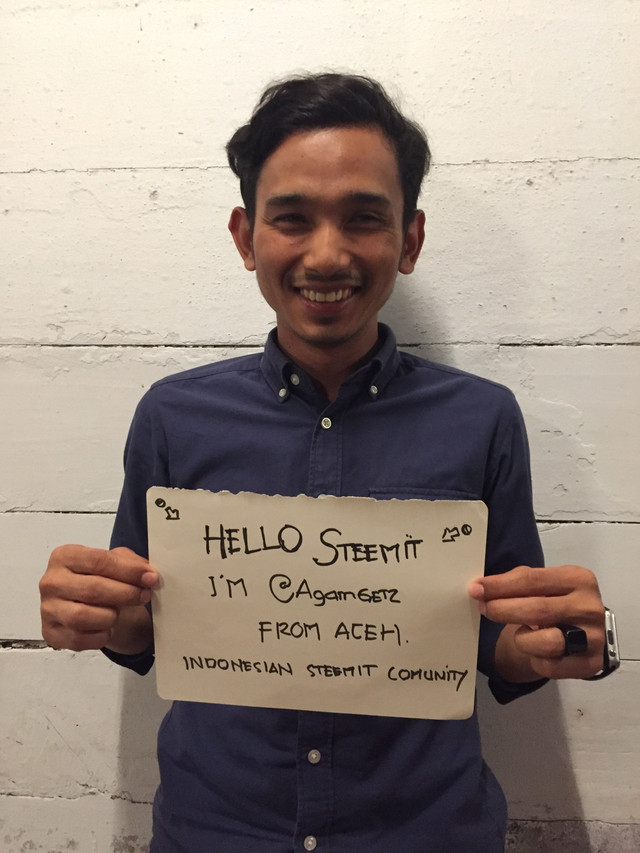 HELLO STEEMIT
I'M @AgamGETZ
FROM ACEH.
INDONESIAN STEEMIT COMUNITY